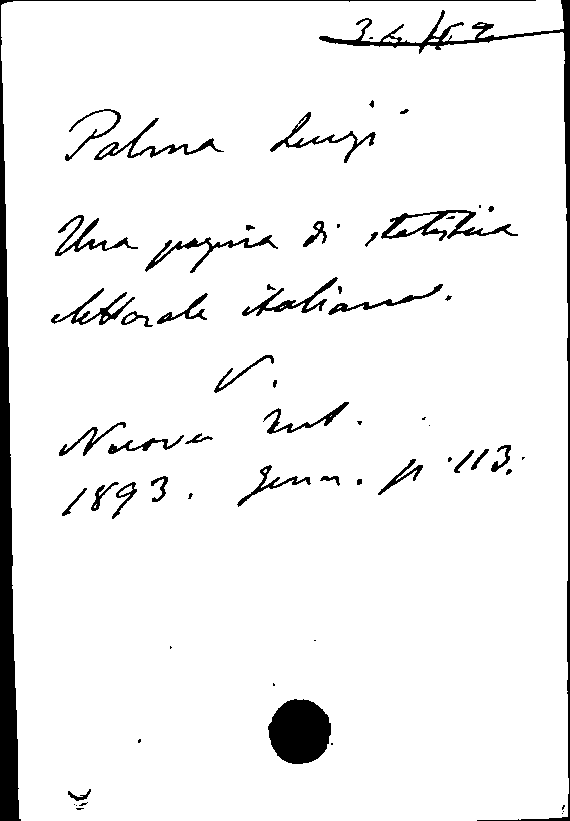 Palma Luigi
Una pagina di statistica
elettorale italiana.
V.
Nuova Ant.
1893. Genn. p. 113.